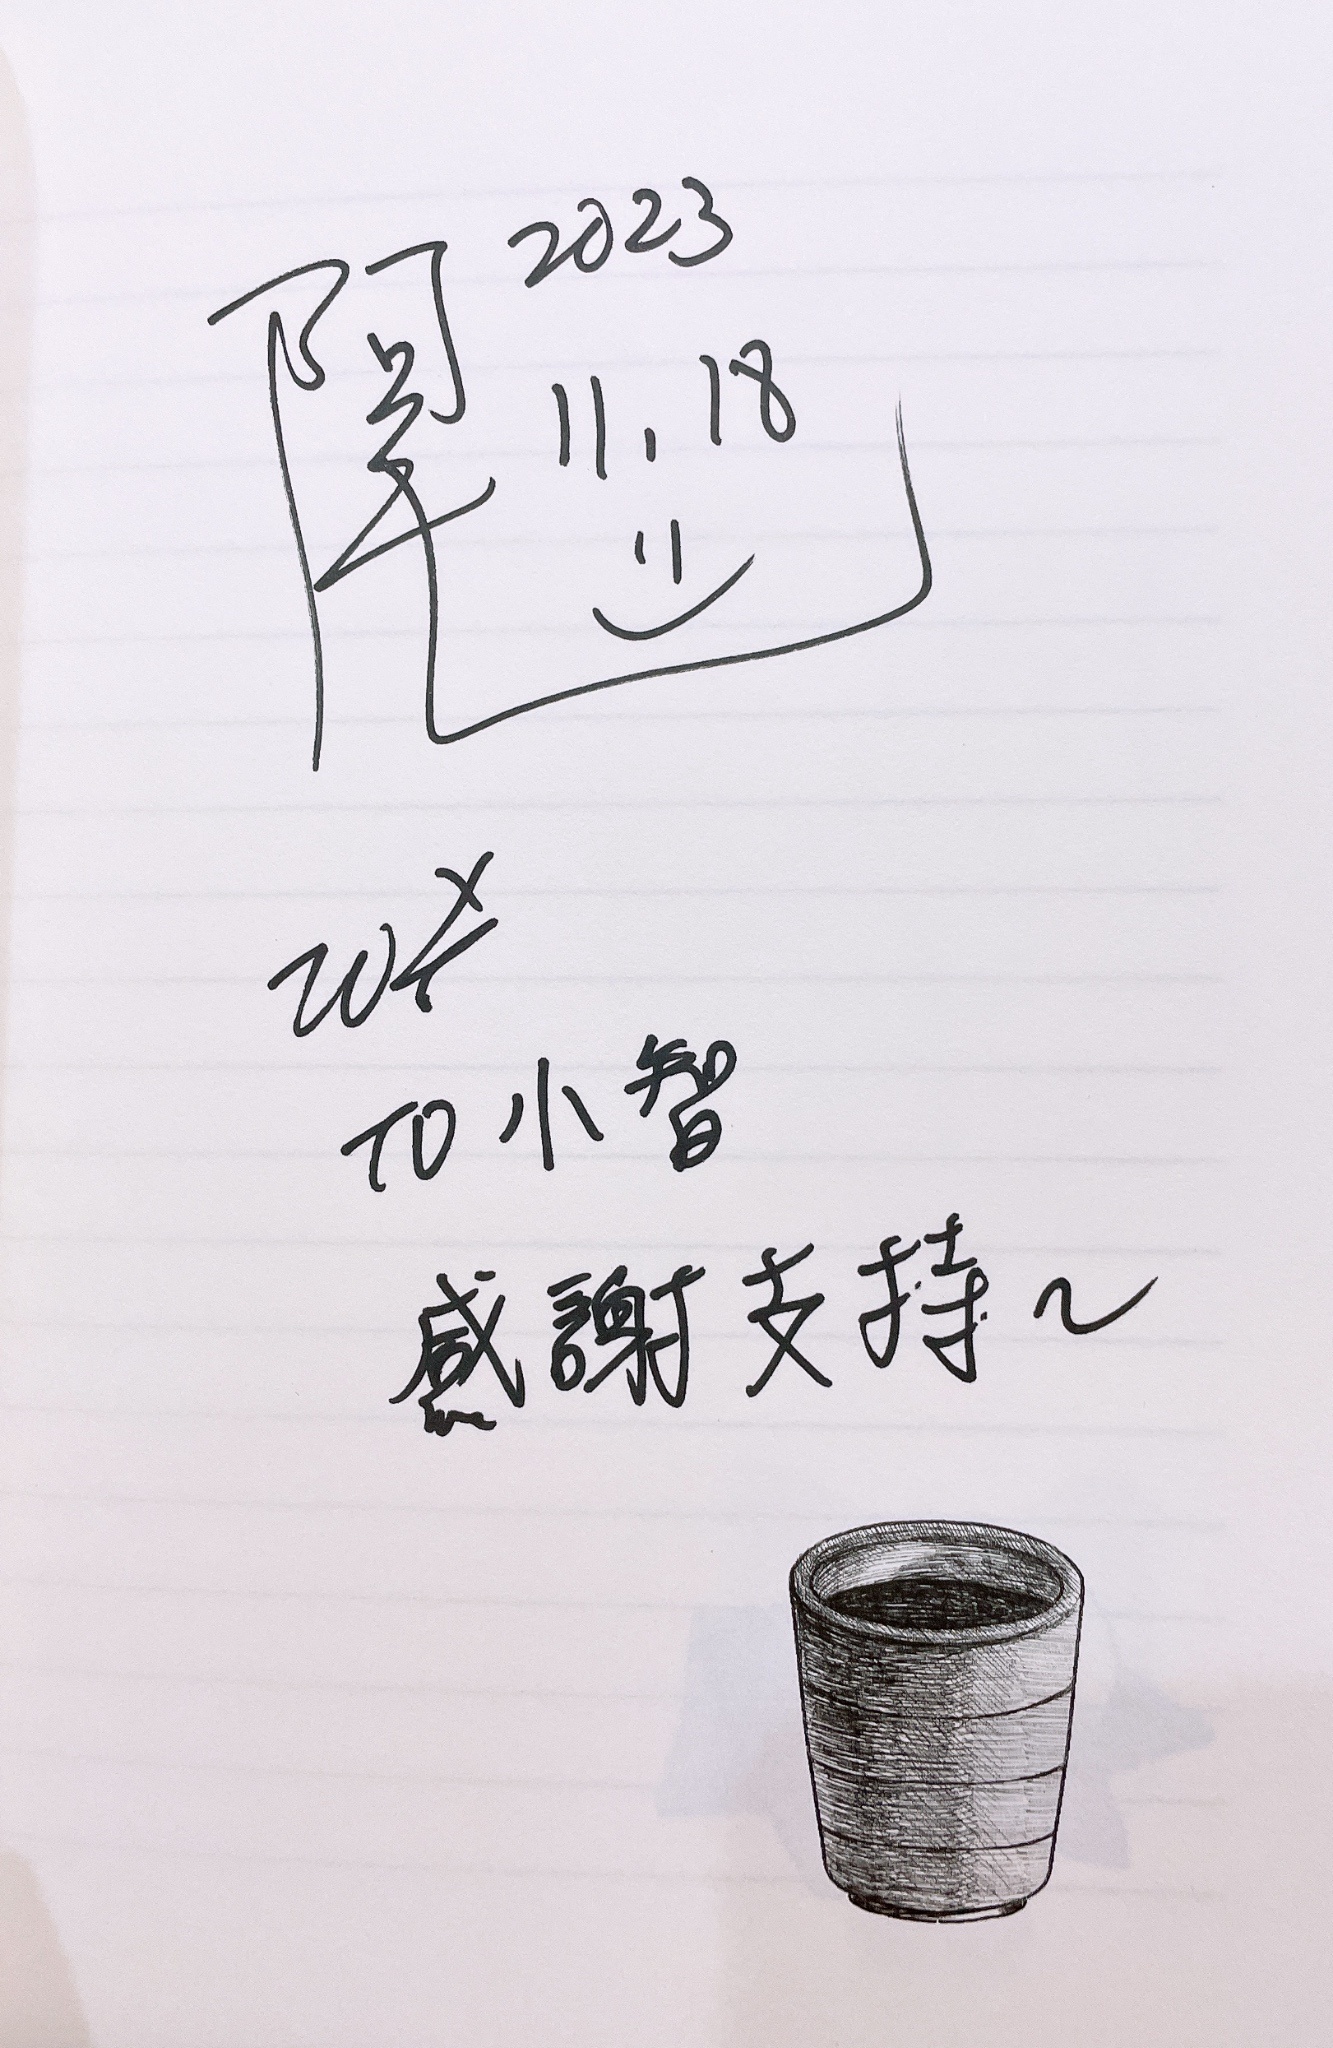 2023
11.18
TO 小智
感謝支持~